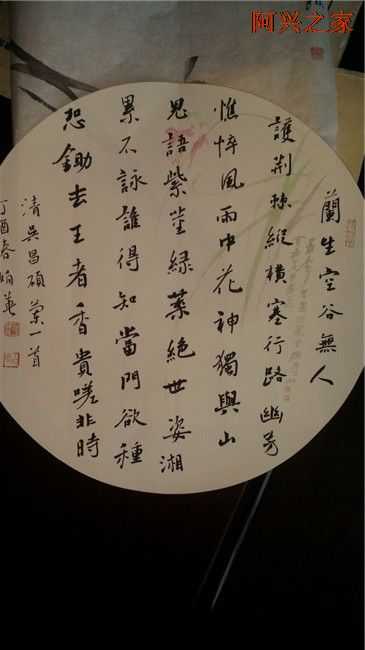 阿兴之家
蘭生空谷無人
護荆棘縱橫塞行路幽芳
憔悴風雨中花神獨與山
鬼語紫莖綠葉絕世姿湘
累不詠誰得知當門欲種
恐鋤去王者香貴嗟非時
清吳昌碩蘭一首
丁酉春